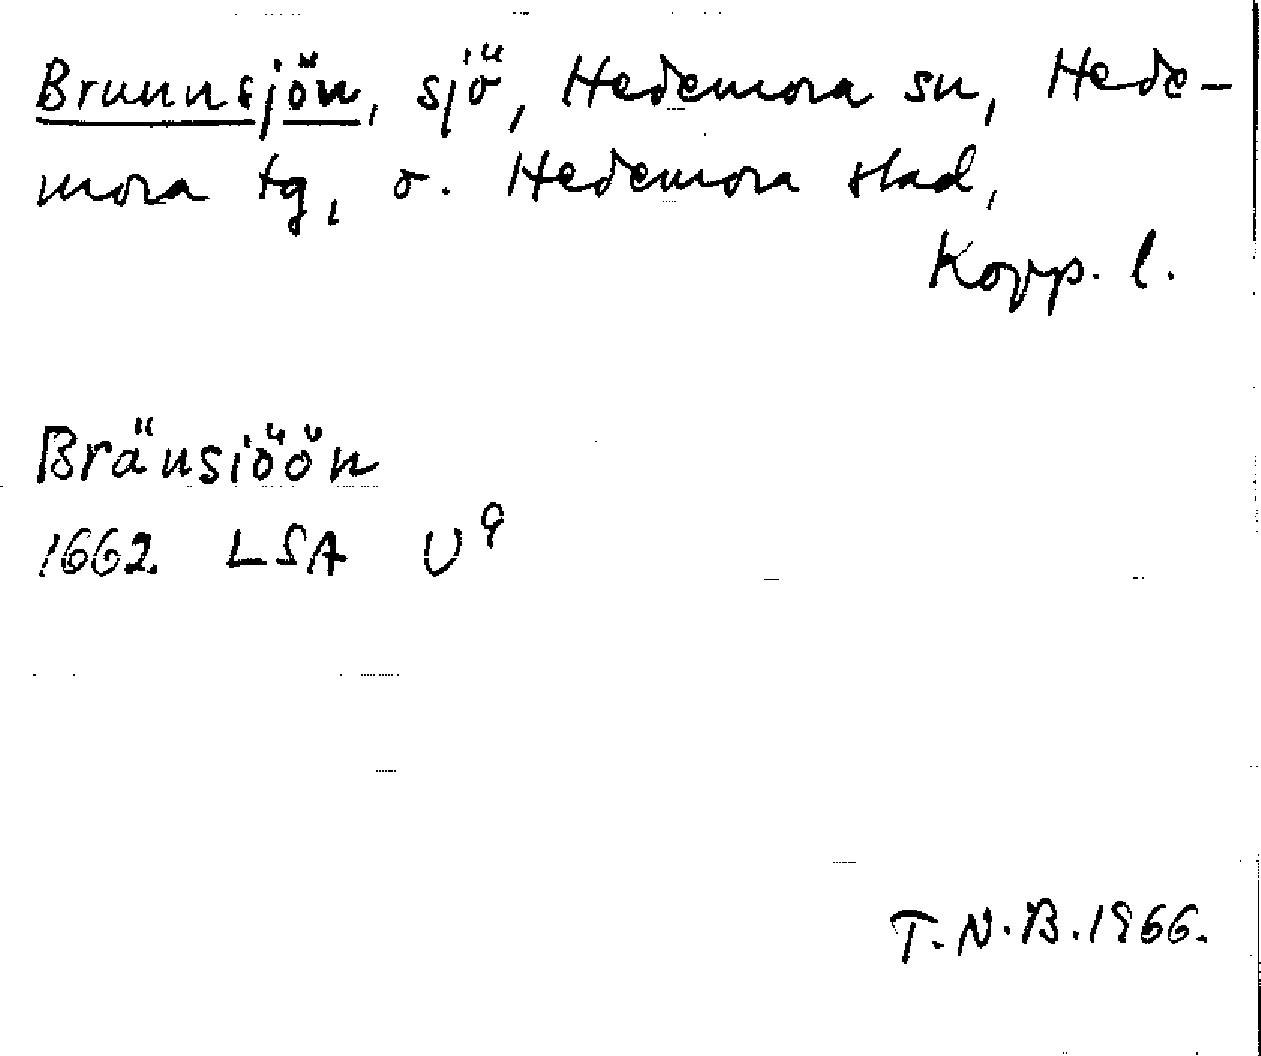 Brunnsjön, sjö, Hedemora sn, Hede-
mora tg, o. Hedemora stad,
Kopp. l.
Bränsiöön
1662. LSA U⁹
T.N.B. 1966.